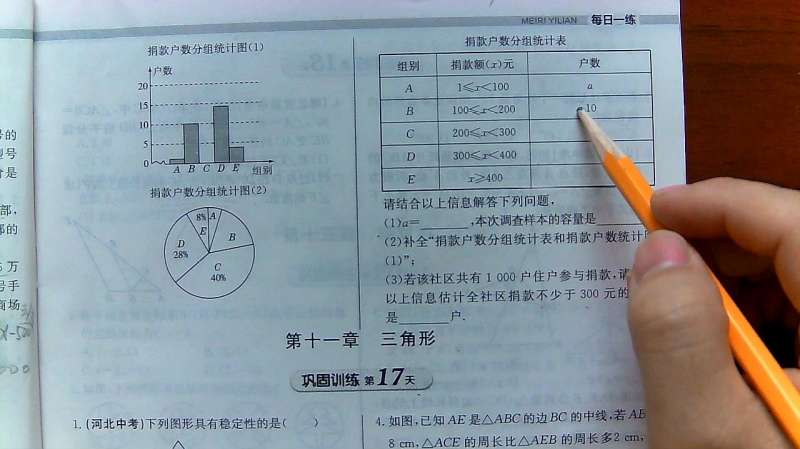 MEIRI YILIAN 每日一练
捐款户数分组统计图(1)
户数
20
15
10
5
0
A B C D E 组别
捐款户数分组统计图(2)
8% A
E
B
D
28%
C
40%
捐款户数分组统计表
组别 捐款额(x)元 户数
A 1≤x<100 a
B 100≤x<200 10
C 200≤x<300
D 300≤x<400
E x≥400
请结合以上信息解答下列问题.
(1)a=______,本次调查样本的容量是
(2)补全“捐款户数分组统计表和捐款户数统计
(1)”;
(3)若该社区共有 1 000 户住户参与捐款,请
以上信息估计全社区捐款不少于 300 元的
是______户.
第十一章 三角形
巩固训练 第17天
1. (河北中考)下列图形具有稳定性的是( )
4. 如图,已知 AE 是△ABC 的边 BC 的中线,若 AB
8 cm,△ACE 的周长比△AEB 的周长多2 cm,